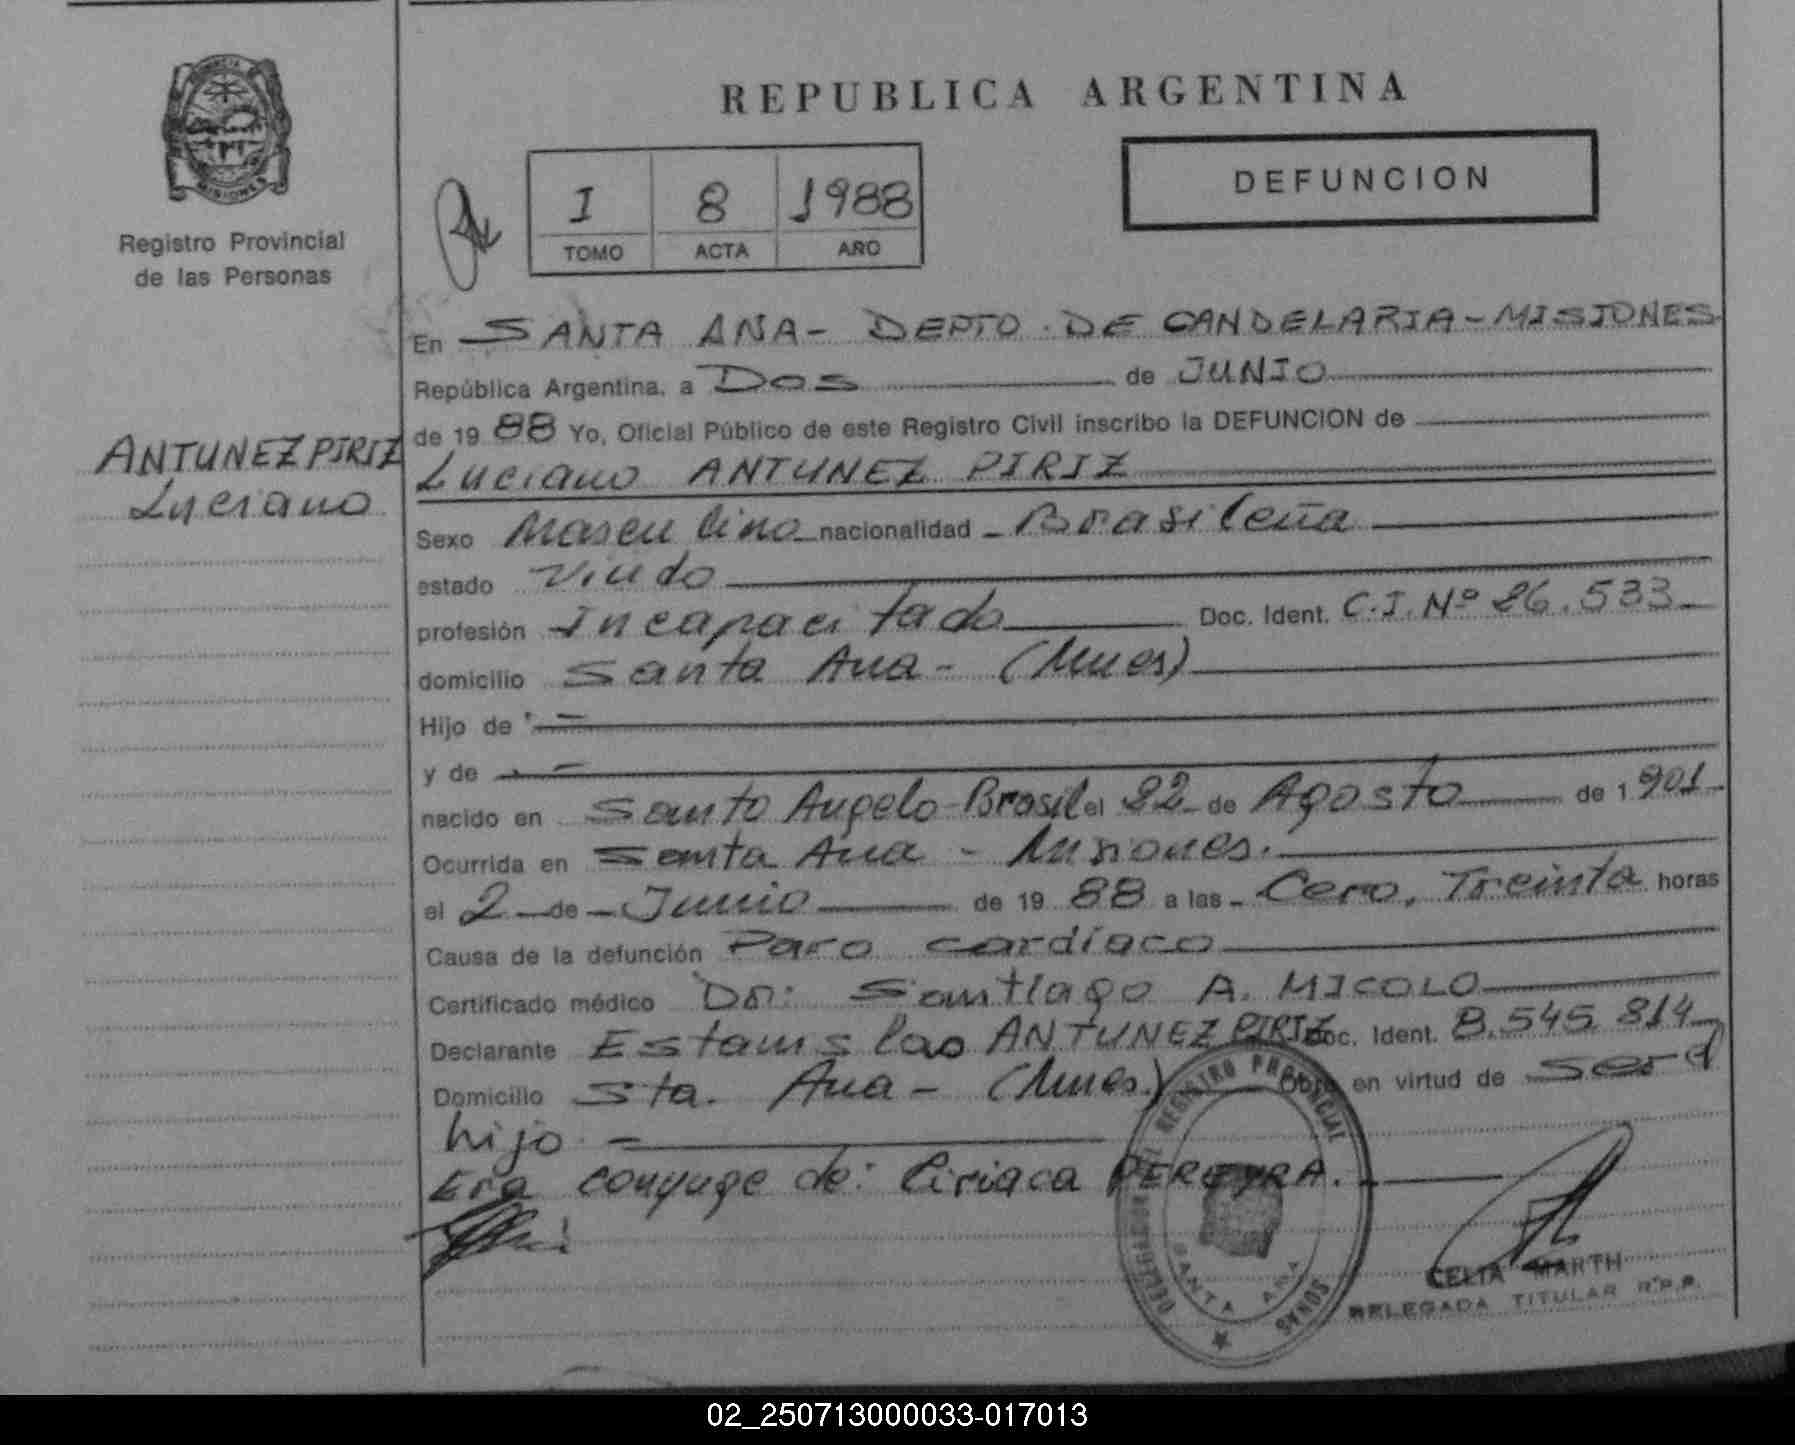 PROVINCIA DE MISIONES
Registro Provincial
de las Personas
ANTUNEZ PIRIZ
Luciano
REPUBLICA ARGENTINA
DEFUNCION
I 8 1988
TOMO ACTA AÑO
En SANTA ANA - DEPTO. DE CANDELARIA - MISIONES
República Argentina, a Dos de JUNIO
de 1988 Yo, Oficial Público de este Registro Civil inscribo la DEFUNCION de
Luciano ANTUNEZ PIRIZ
Sexo Masculino nacionalidad - Brasileña
estado Viudo
profesión Incapacitado Doc. Ident. C.I. Nº 26.533
domicilio Santa Ana - (Mnes)
Hijo de -
y de -
nacido en Santo Angelo - Brasil el 22 de Agosto de 1901
Ocurrida en Santa Ana - Misiones.
el 2 de - Junio de 1988 a las - Cero, Treinta horas
Causa de la defunción Paro cardíaco
Certificado médico Dr: Santiago A. MICOLO
Declarante Estanislao ANTUNEZ PIRIZ Doc. Ident. 8.545.814
Domicilio Sta. Ana - (Mnes.) Obra en virtud de ser el
hijo -
Era conyuge de: Ciriaca PEREYRA.
DELEGACION REGISTRO PROVINCIAL
SANTA ANA
CELIA MARTH
DELEGADA TITULAR R.P.P.
02_250713000033-017013